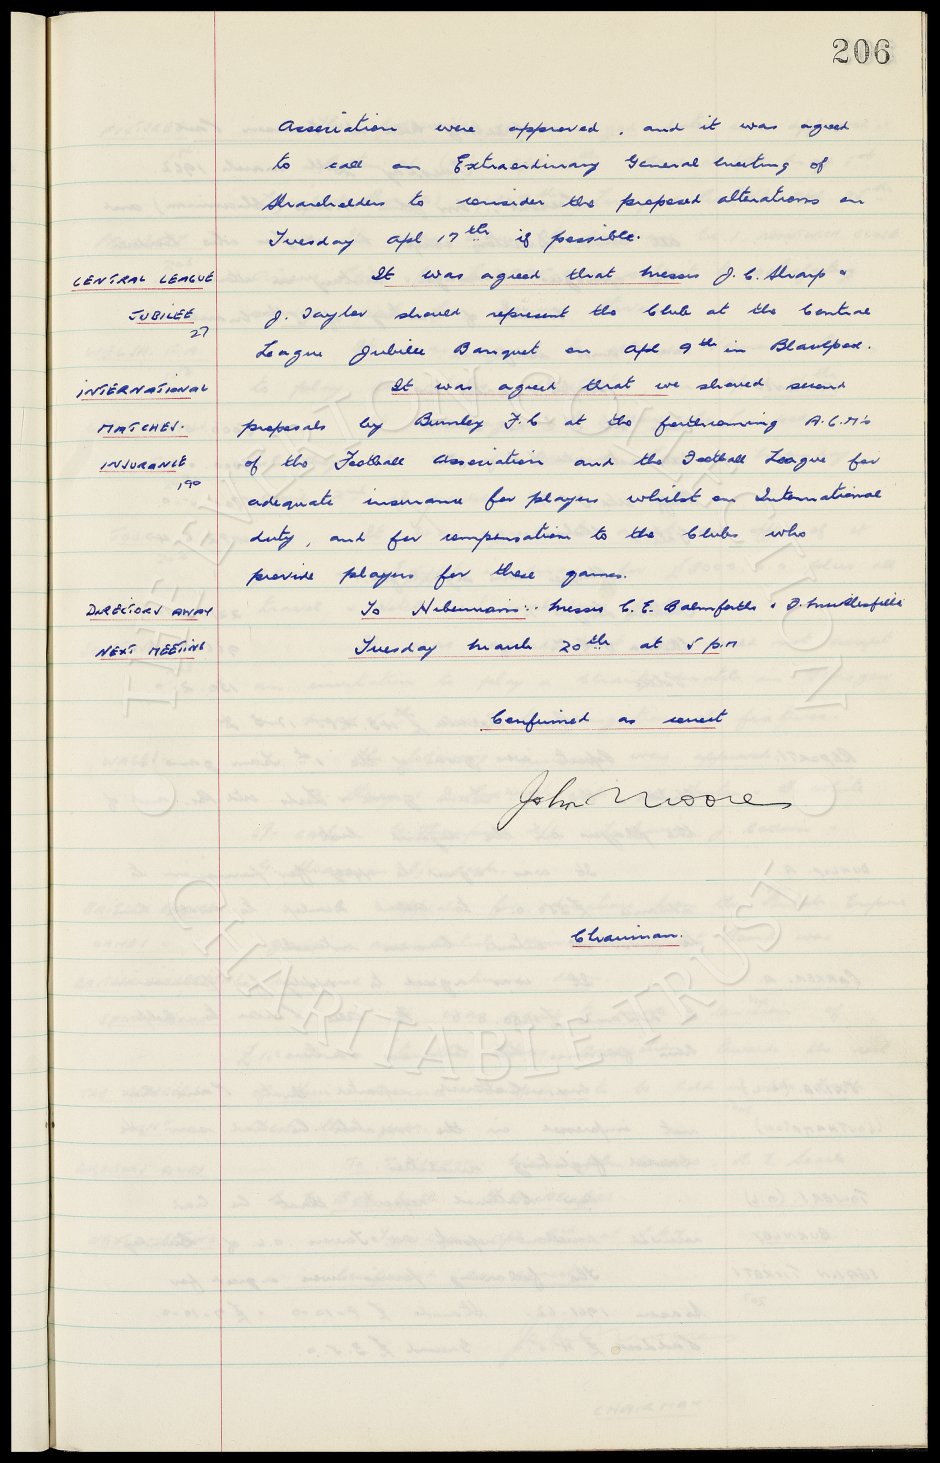 206
Association were approved, and it was agreed
to call an Extraordinary General Meeting of
Shareholders to consider the proposed alterations on
Tuesday Apl 17th if possible.
CENTRAL LEAGUE It was agreed that Messrs J. C. Sharp &
JUBILEE J. Taylor should represent the Club at the Central
27
League Jubilee Banquet on Apl 9th in Blackpool.
INTERNATIONAL It was agreed that we should second
MATCHES. proposals by Burnley F.C at the forthcoming A.G.M's
INSURANCE of the Football Association and the Football League for
190
adequate insurance for players whilst on International
duty, and for compensation to the Clubs who
provide players for these games.
DIRECTORS AWAY To Hibernians: Messrs C. E. Balmforth & F. Micklesfield
NEXT MEETING Tuesday March 20th at 5 p.m
Confirmed as correct
John Moores
Chairman.
THE EVERTON COLLECTION
CHARITABLE TRUST